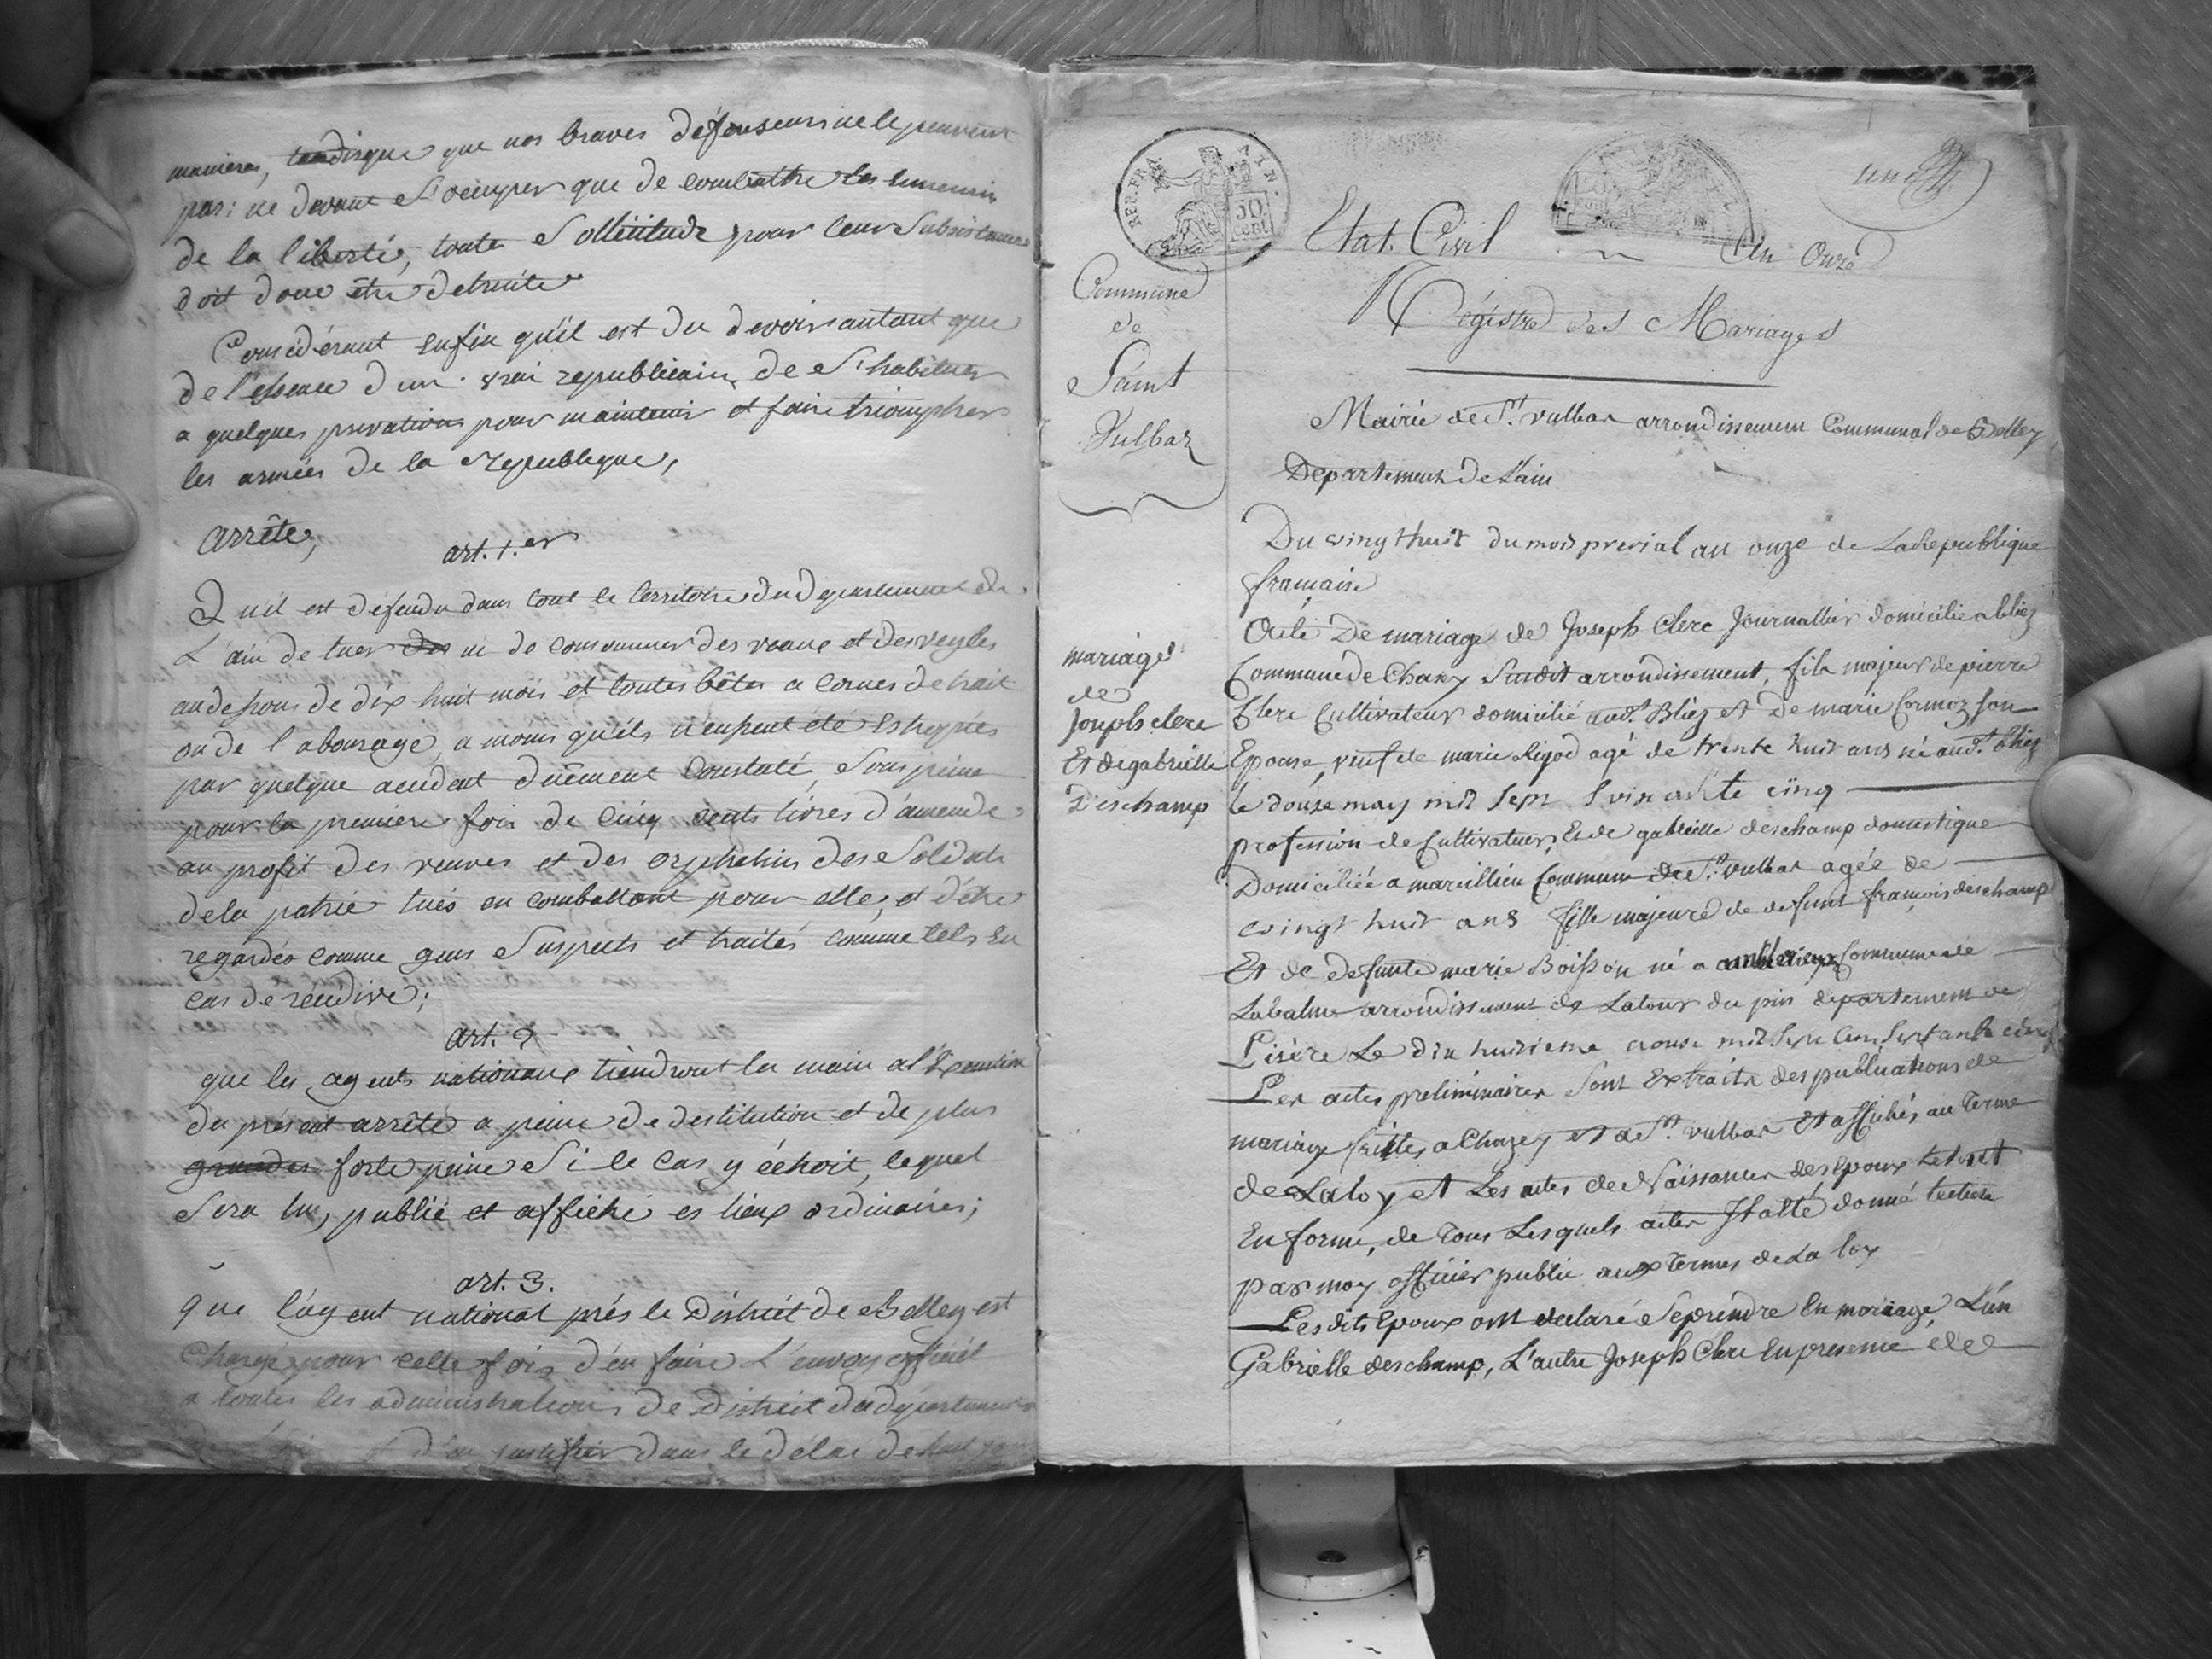 manieres, tandisque que nos braves défenseurs ne le peuvent
pas; ne devant s'occuper que de combattre les ennemis
de la liberté, toute sollicitude pour leur subsistance
doit donc être detruite
Considérant enfin qu'il est du devoir autant que
de l'essence d'un vrai republicain de s'habituer
a quelques privations pour maintenir et faire triompher
les armées de la republique,
arrête,
art. 1.er
Quil est défendu dans tout le territoire du departement de
L'ain de tuer des ni de consommer des veaux et des veyles
au dessous de dix huit mois et toutes bêtes a cornes de trait
ou de l'abourage, a moins qu'ils n'eussent été estropiés
par quelque accident duëment constaté, sous peine
pour la première fois de cinq cents livres d'amende
au profit des veuves et des orphelins des soldats
de la patrie tués en combattant pour elle, et d'être
regardés comme gens suspects et traités comme tels en
cas de récidive;
art. 2
que les agents nationaux tiendront la main a l'Execution
du présent arrêté a peine de destitution et de plus
grandes forte peine si le cas y échoit, lequel
sera lu, publié et affiché es lieux ordinaires;
art. 3.
que l'agent national près le District de Belley est
chargé pour celle fois d'en faire l'envoy officiel
a toutes les administrations de District du departement
d'en justifier dans le délai de huit
REP. FRA
50 cent
un
Etat Civil
An Onze
Régistre des Mariages
Commune
de
Saint
Vulbaz
Mairie de St. vulbas arrondissement Communal de Belley
Departement de L'ain
Du vingt huit du mois prerial an onze de La Republique
francaise
mariage
de
Joseph clerc
Et de gabrielle
Deschamp
Acte De mariage de Joseph Clerc Journallier domicilié a bliez
Commune de Chazey susdit arrondissement, fils majeur de pierre
Clerc Cultivateur domicilié aud.t Bliez et de marie Cormoz son
Epouse, veuf de marie Rigod agé de trente huit ans né aud.t bliez
le douze may mil sept soixante cinq
profession de Cultivateur, Et de gabrielle deschamp domestique
Domiciliée a marcillieu Commune de St. vulbas agée de
vingt huit ans fille majeure de defunt françois deschamp
Et de defunte marie Boisson né a amblerieux Commune de
Labalme arrondissement de Latour du pin departement de
L'isère Le dix huitieme aouse mil Sept Cent Septante cinq
Les actes preliminaires sont Extraits des publications de
mariage faittes a Chazey et a St. vulbas Et affichés au terme
de La loy et Les actes de Naissances des Epoux Le tout
En forme, de tous Lesquels actes Il a été donné lecture
par moy officier public aux termes de La loy
Lesdits Epoux ont declaré se prendre En mariage, L'un
Gabrielle deschamp, L'autre Joseph Clerc En presence de